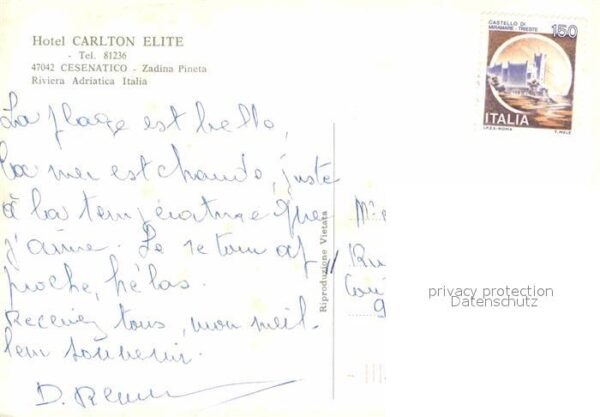 Hotel CARLTON ELITE
- Tel. 81236
47042 CESENATICO - Zadina Pineta
Riviera Adriatica Italia
CASTELLO DI
MIRAMARE - TRIESTE
150
ITALIA
I.P.Z.S. - ROMA
La plage est belle,
la mer est chaude, juste
à la température que
j'aime. Le retour est
proche, hélas.
Recevez tous, mon meil-
leur souvenir.
D.
Riproduzione Vietata
privacy protection
Datenschutz